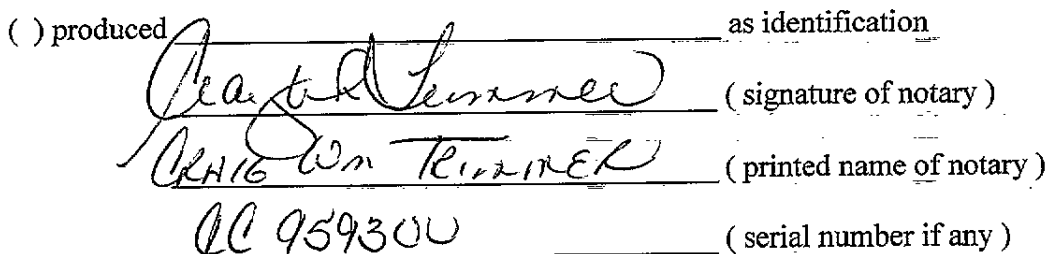 ( ) produced as identification
( signature of notary )
CRAIG Wm TRIMMER ( printed name of notary )
CC 959300 ( serial number if any )